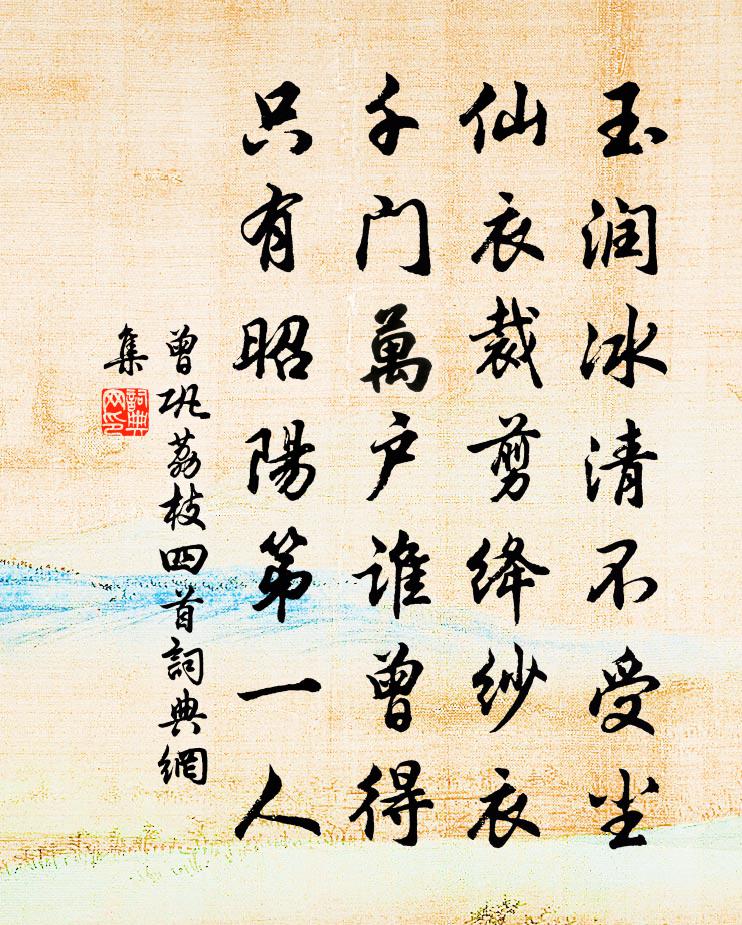 玉润冰清不受尘
仙衣裁剪绛纱衣
千门萬户谁曾得
只有昭陽第一人
曾巩荔枝四首詞典網
集
詞典
网印